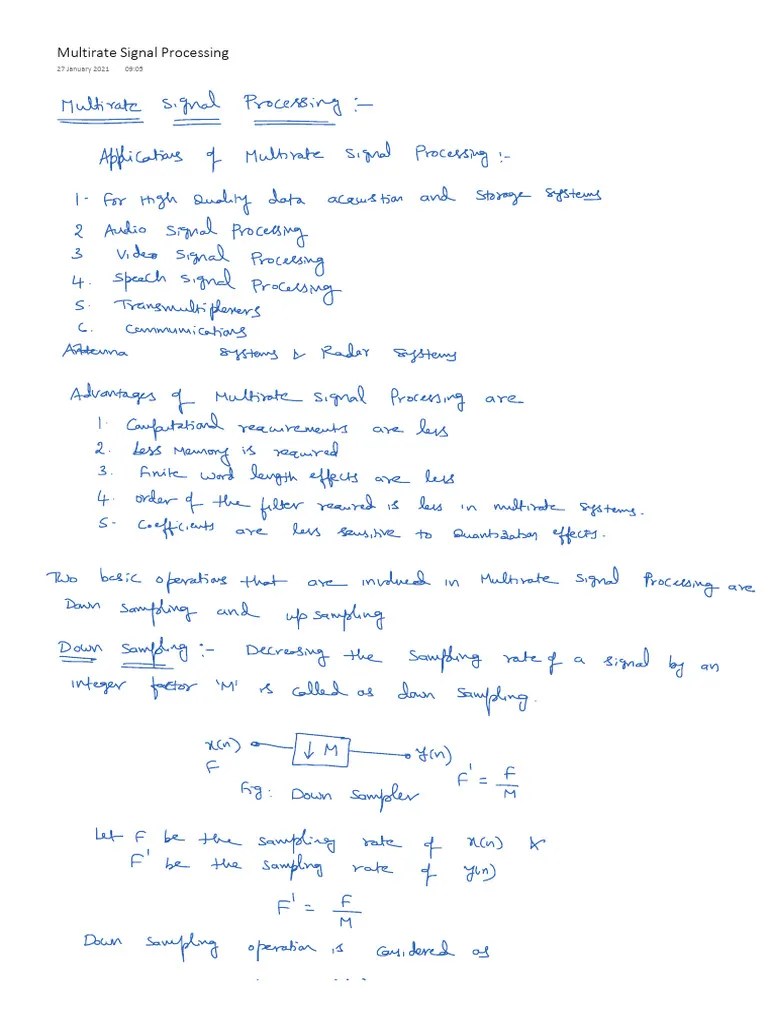 Multirate Signal Processing
27 January 2021 09:05
Multirate Signal Processing :-
Applications of Multirate Signal Processing :-
1- For High Quality data acquistion and Storage Systems
2 Audio Signal Processing
3 Video Signal Processing
4. Speech Signal Processing
5. Transmultiplexers
6. Communications
Antenna Systems & Radar Systems
Advantages of Multirate Signal Processing are
1. Computational requirements are less
2. Less Memory is required
3. Finite word length effects are less
4. order of the filter required is less in multirate Systems.
5- Coefficients are less sensitive to Quantization effects.
Two basic operations that are involved in Multirate Signal Processing are
Down Sampling and up sampling
Down Sampling :- Decreasing the sampling rate of a signal by an
integer factor 'M' is called as down sampling.
x(n) ↓ M y(n)
F F' = F/M
Fig: Down Sampler
Let F be the sampling rate of x(n) &
F' be the sampling rate of y(n)
F' = F/M
Down sampling operation is considered as